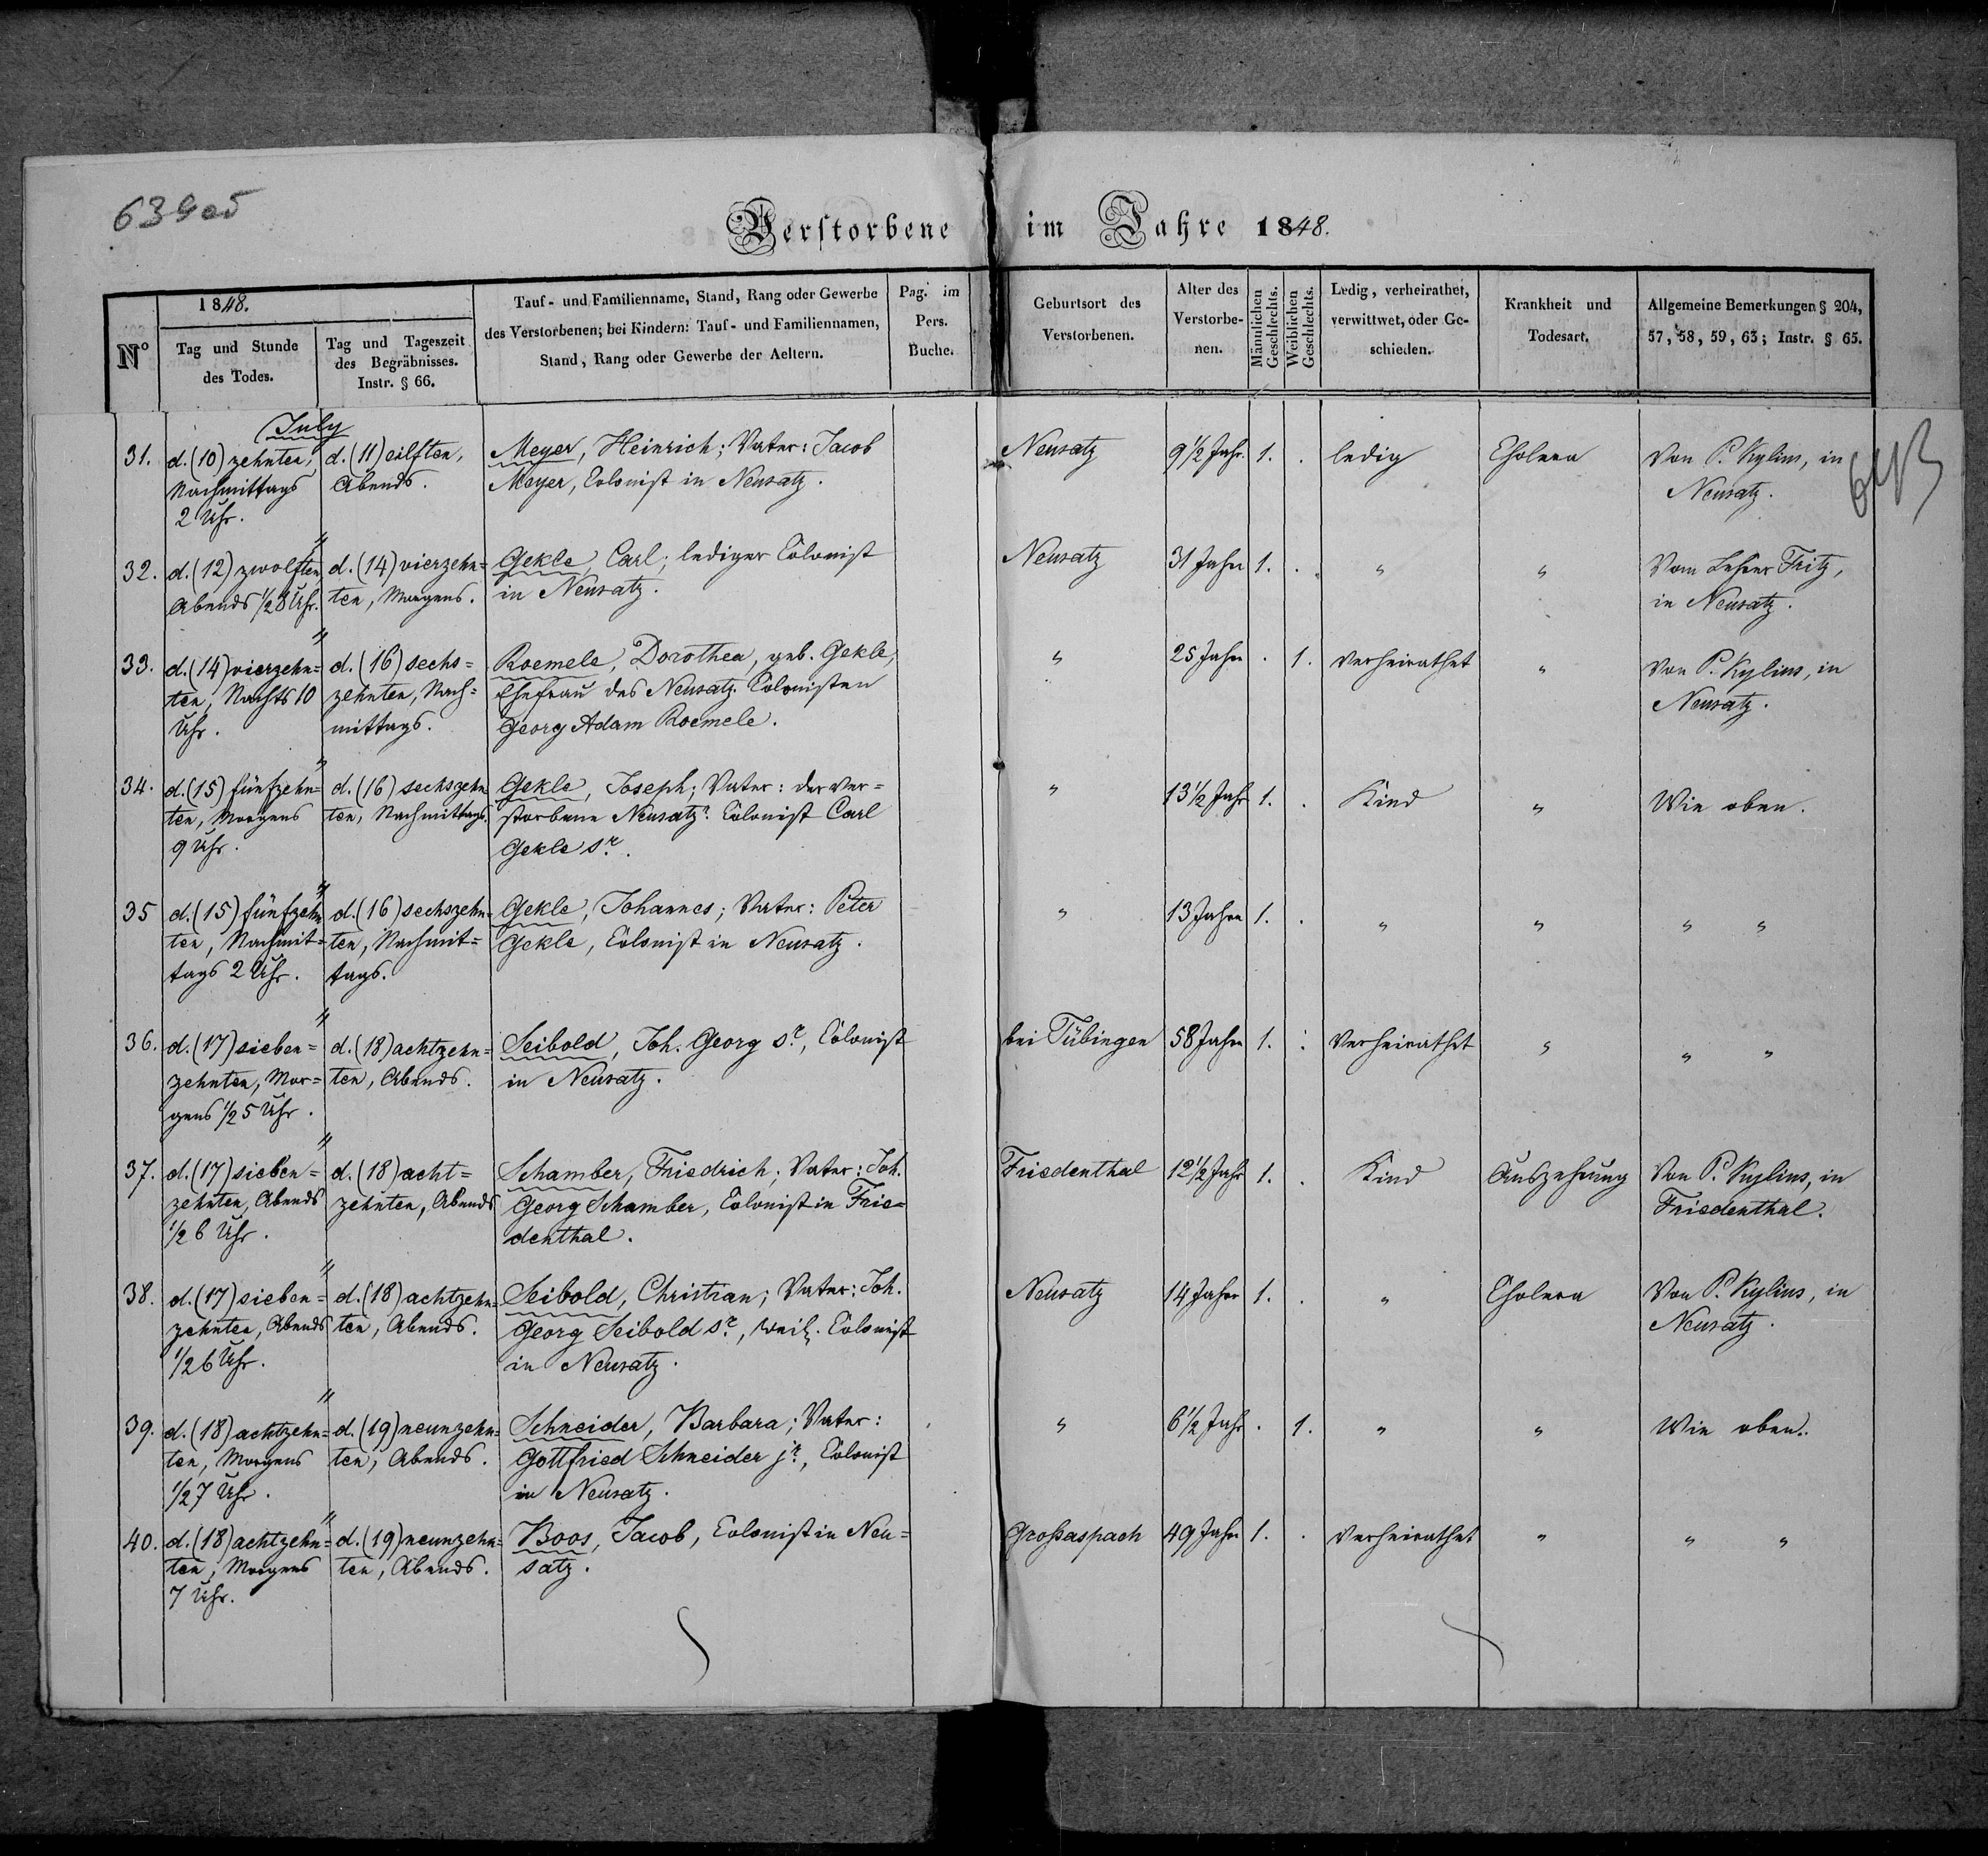 Verstorbene im Jahre 1848.
N°
1848.
Tag und Stunde
des Todes.
Tag und Tageszeit
des Begräbnisses.
Instr. § 66.
Tauf- und Familienname, Stand, Rang oder Gewerbe
des Verstorbenen; bei Kindern: Tauf- und Familiennamen,
Stand, Rang oder Gewerbe der Aeltern.
Pag. im
Pers.
Buche.
Geburtsort des
Verstorbenen.
Alter des
Verstorbe-
nen.
Männlichen
Geschlechts.
Weiblichen
Geschlechts.
Ledig, verheirathet,
verwittwet, oder Ge-
schieden.
Krankheit und
Todesart.
Allgemeine Bemerkungen § 204,
57, 58, 59, 63; Instr. § 65.
July
31.
d. (10) zehnten,
Nachmittags
2 Uhr.
d. (11) eilften,
Abends.
Meyer, Heinrich; Vater: Jacob
Meyer, Colonist in Neusatz.
Neusatz
9 1/2 Jahr.
1.
.
ledig
Cholera
Von P. Kylius, in
Neusatz.
643
"
32.
d. (12) zwolften
Abends 1/2 8 Uhr.
d. (14) vierzehn=
ten, Morgens.
Gekle, Carl; lediger Colonist
in Neusatz.
Neusatz
31 Jahre
1.
.
"
"
Vom Lehrer Fritz,
in Neusatz.
"
33.
d. (14) vierzehn=
ten, Nachts 10
Uhr.
d. (16) sechs=
zehnten, Nach=
mittags.
Roemele, Dorothea, geb. Gekle,
Ehefrau des Neusatz. Colonisten
Georg Adam Roemele.
"
25 Jahre
.
1.
verheirathet
"
Von P. Kylius, in
Neusatz.
"
34.
d. (15) fünfzehn=
ten, Morgens
9 Uhr.
d. (16) sechszehn
ten, Nachmittags.
Gekle, Joseph; Vater: der ver=
storbene Neusatzr. Colonist Carl
Gekle sr.
"
13 1/2 Jahr
1.
.
Kind
"
Wie oben.
"
35
d. (15) fünfzehn
ten, Nachmit=
tags 2 Uhr.
d. (16) sechszehn=
ten, Nachmit=
tags.
Gekle, Johannes; Vater: Peter
Gekle, Colonist in Neusatz.
"
13 Jahre
1.
.
"
"
" "
"
36.
d. (17) sieben=
zehnten, Mor=
gens 1/2 5 Uhr.
d. (18) achtzehn=
ten, Abends.
Seibold, Joh. Georg sr., Colonist
in Neusatz.
bei Tübingen
58 Jahre
1.
.
Verheirathet
"
" "
"
37.
d. (17) sieben=
zehnten, Abends
1/2 6 Uhr.
d. (18) acht=
zehnten, Abends
Schamber, Friedrich; Vater: Joh.
Georg Schamber, Colonist in Frie=
denthal.
Friedenthal
12 1/2 Jahr
1.
.
Kind
Auszehrung
Von P. Kylius, in
Friedenthal.
"
38.
d. (17) sieben=
zehnten, Abends
1/2 6 Uhr.
d. (18) achtzehn=
ten, Abends.
Seibold, Christian; Vater: Joh.
Georg Seibold sr., weil. Colonist
in Neusatz.
Neusatz
14 Jahre
1.
.
"
Cholera
Von P. Kylius, in
Neusatz.
"
39.
d. (18) achtzehn=
ten, Morgens
1/2 7 Uhr.
d. (19) neunzehn=
ten, Abends.
Schneider, Barbara; Vater:
Gottfried Schneider jr., Colonist
in Neusatz.
"
6 1/2 Jahr
.
1.
"
"
Wie oben.
"
40.
d. (18) achtzehn=
ten, Morgens
7 Uhr.
d. (19) neunzehn=
ten, Abends.
Boos, Jacob, Colonist in Neu=
satz.
Großaspach
49 Jahre
1.
.
Verheirathet
"
" "